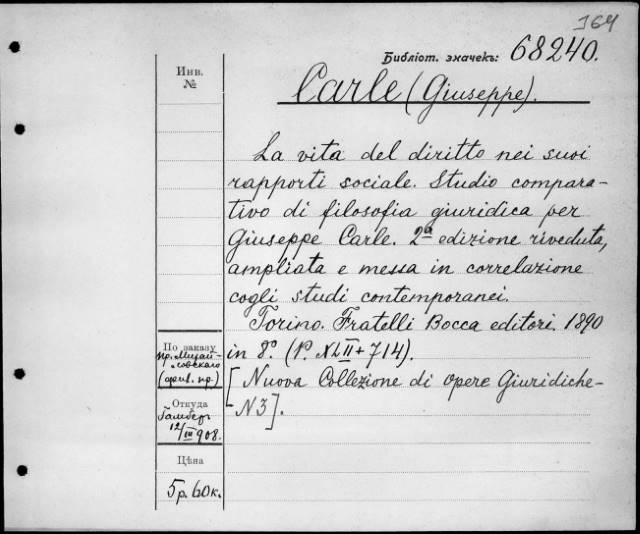 164
Библіот. значекъ: 68240.
Инв.
№
Carle (Giuseppe).
La vita del diritto nei suoi
rapporti sociale. Studio compara-
tivo di filosofia giuridica per
Giuseppe Carle. 2a edizione riveduta,
ampliata e messa in correlazione
cogli studi contemporanei.
Torino. Fratelli Bocca editori. 1890
in 8o. (P. XLII + 714).
[Nuova Collezione di opere Giuridiche-
N3].
По заказу
пр. Михай-
ловскаго
Откуда
12/III 908.
Цѣна
5 р. 60 к.